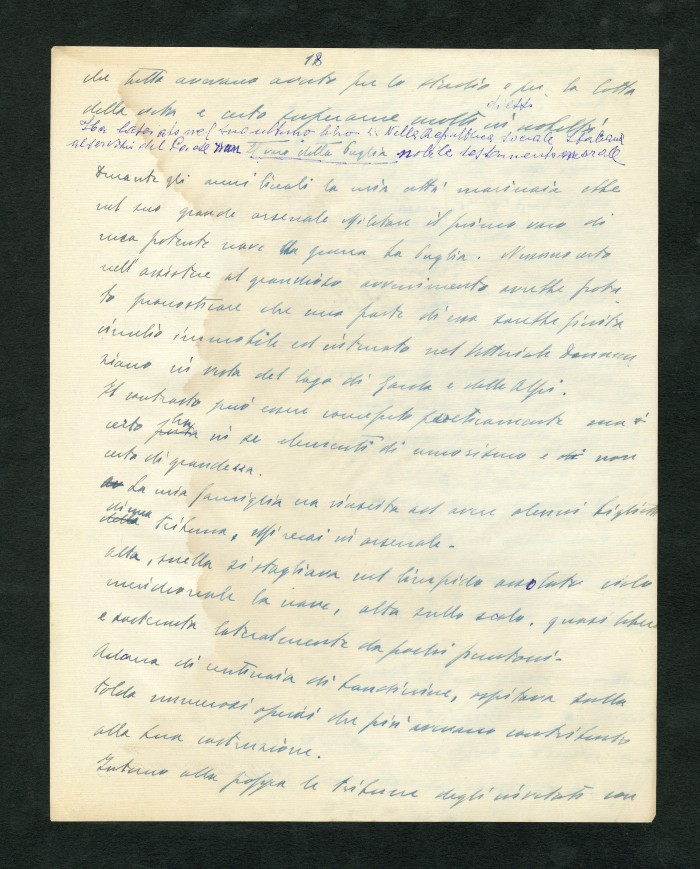 18
che tutti avevano avuto per lo studio e per la lotta
della vita e certo superarne molti di essi in nobiltà
Ha lasciato nel suo ultimo libro "Nella Repubblica Sociale Italiana
al servizio del Paese" un nobile testamento morale
Il varo della Puglia
Durante gli anni liceali la mia città marinaia ebbe
nel suo grande arsenale Militare il primo varo di
una potente nave da guerra La Puglia. Nessuno
nell'assistere al grandioso avvenimento avrebbe potu
to pronosticare che una parte di essa sarebbe finita
immobile ed nel Vittoriale Dannun
ziano in vista del lago di Garda e delle Alpi.
Il contrasto può essere concepito poeticamente ma è
certo ha in se elementi di umorismo e non
certo di grandezza.
La mia famiglia era riuscita ad avere alcuni biglietti
di una tribuna, mi recai in arsenale.
Alta, snella si stagliava nel limpido assolato cielo
meridionale la nave, alta sullo scalo, quasi libera
e sostenuta lateralmente da pochi puntoni.
Adorna di centinaia di bandierine, ospitava sulla
tolda numerosi operai che più avevano contribuito
alla sua costruzione.
Intorno alla poppa le tribune degli invitati con